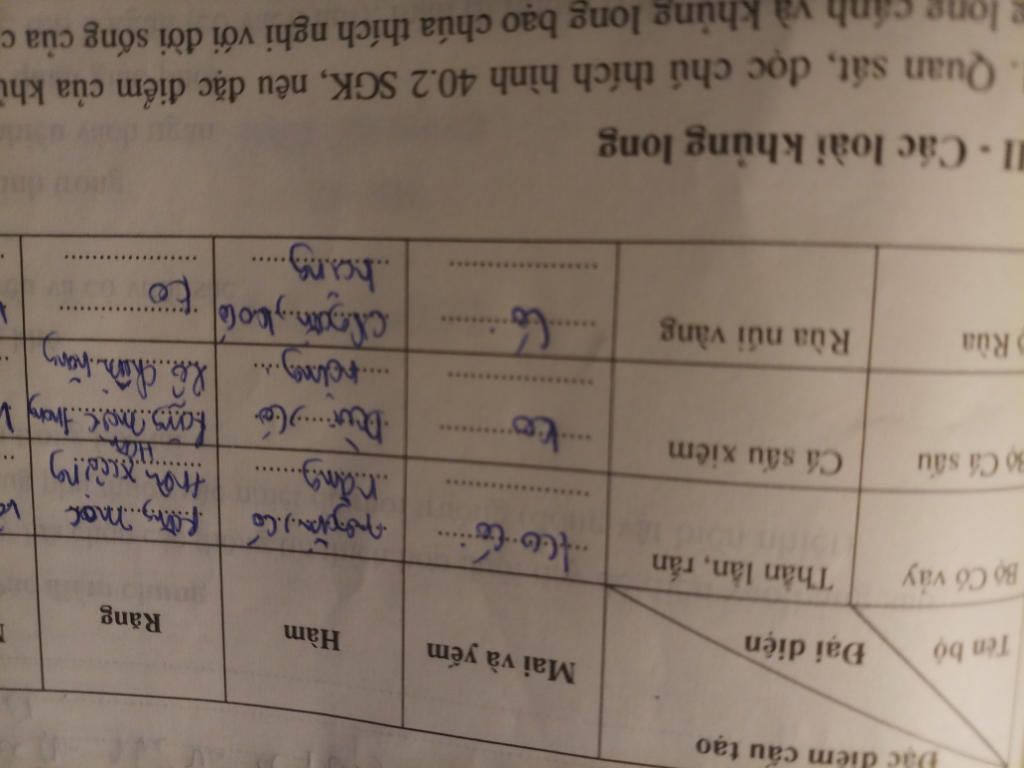 Đặc điểm cấu tạo
Tên bộ
Đại diện
Mai và yếm
Hàm
Răng
Bộ Có vảy
Thằn lằn, rắn
ko có
ngắn, có
răng
răng mọc
trên xương
hàm
Bộ Cá sấu
Cá sấu xiêm
ko
Dài, có
răng
răng mọc trong
lỗ chân răng
Bộ Rùa
Rùa núi vàng
Có
ngắn, ko có
răng
ko
II - Các loài khủng long
. Quan sát, đọc chú thích hình 40.2 SGK, nêu đặc điểm của
long cánh và khủng long bạo chúa thích nghi với đời sống của